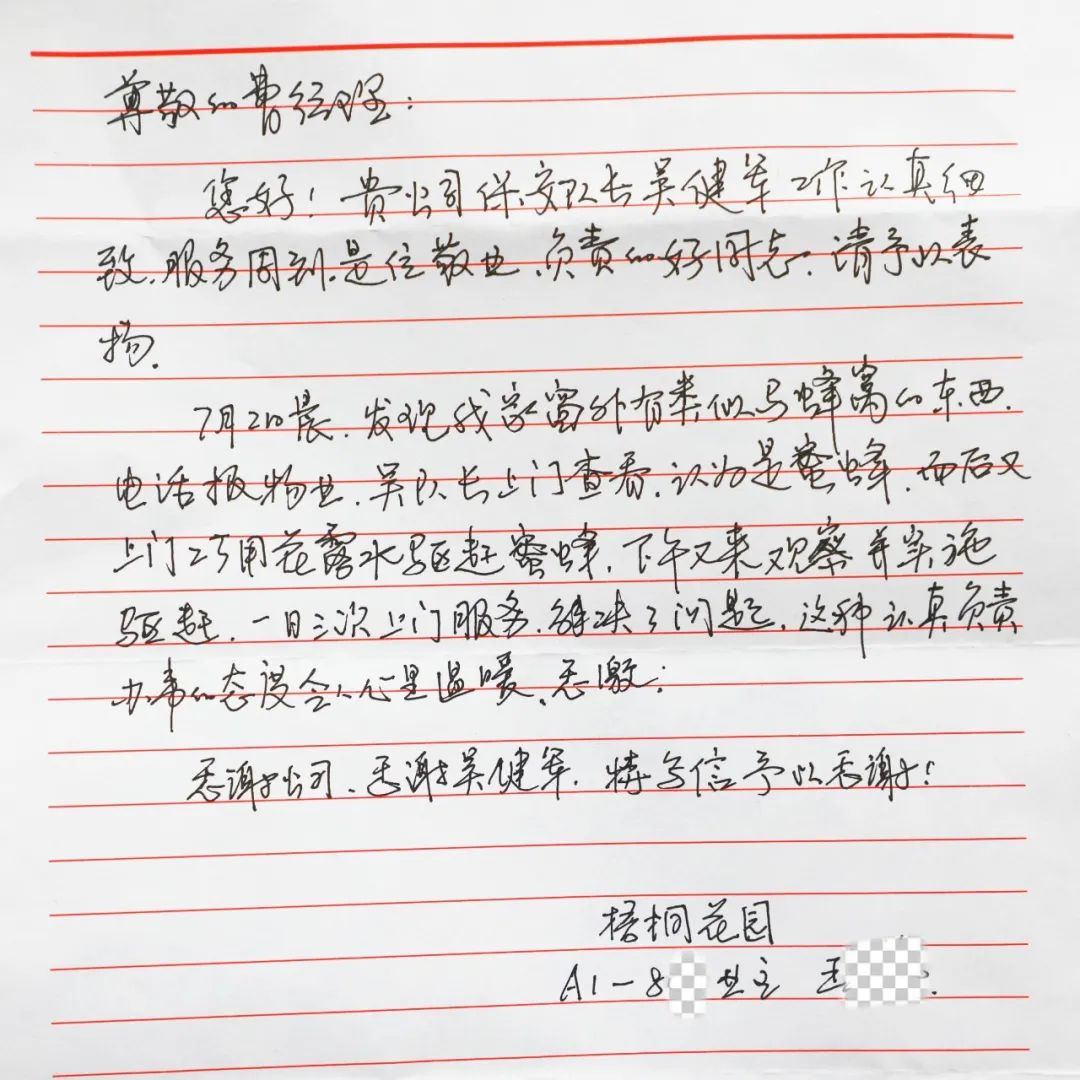 尊敬的费经理：
您好！贵公司保安队长吴健军工作认真细
致，服务周到，是位敬业、负责的好同志，请予以表
扬。
7月2日晨，发现我家窗外有类似马蜂窝的东西，
电话报物业，吴队长上门查看，认为是蜜蜂，而后又
上门巧用花露水驱赶蜜蜂，下午又来观察并实施
驱赶，一日三次上门服务，解决了问题，这种认真负责
办事的态度令人心里温暖、感激；
感谢公司、感谢吴健军，特写信予以感谢！
梧桐花园
A1-8 业主 王